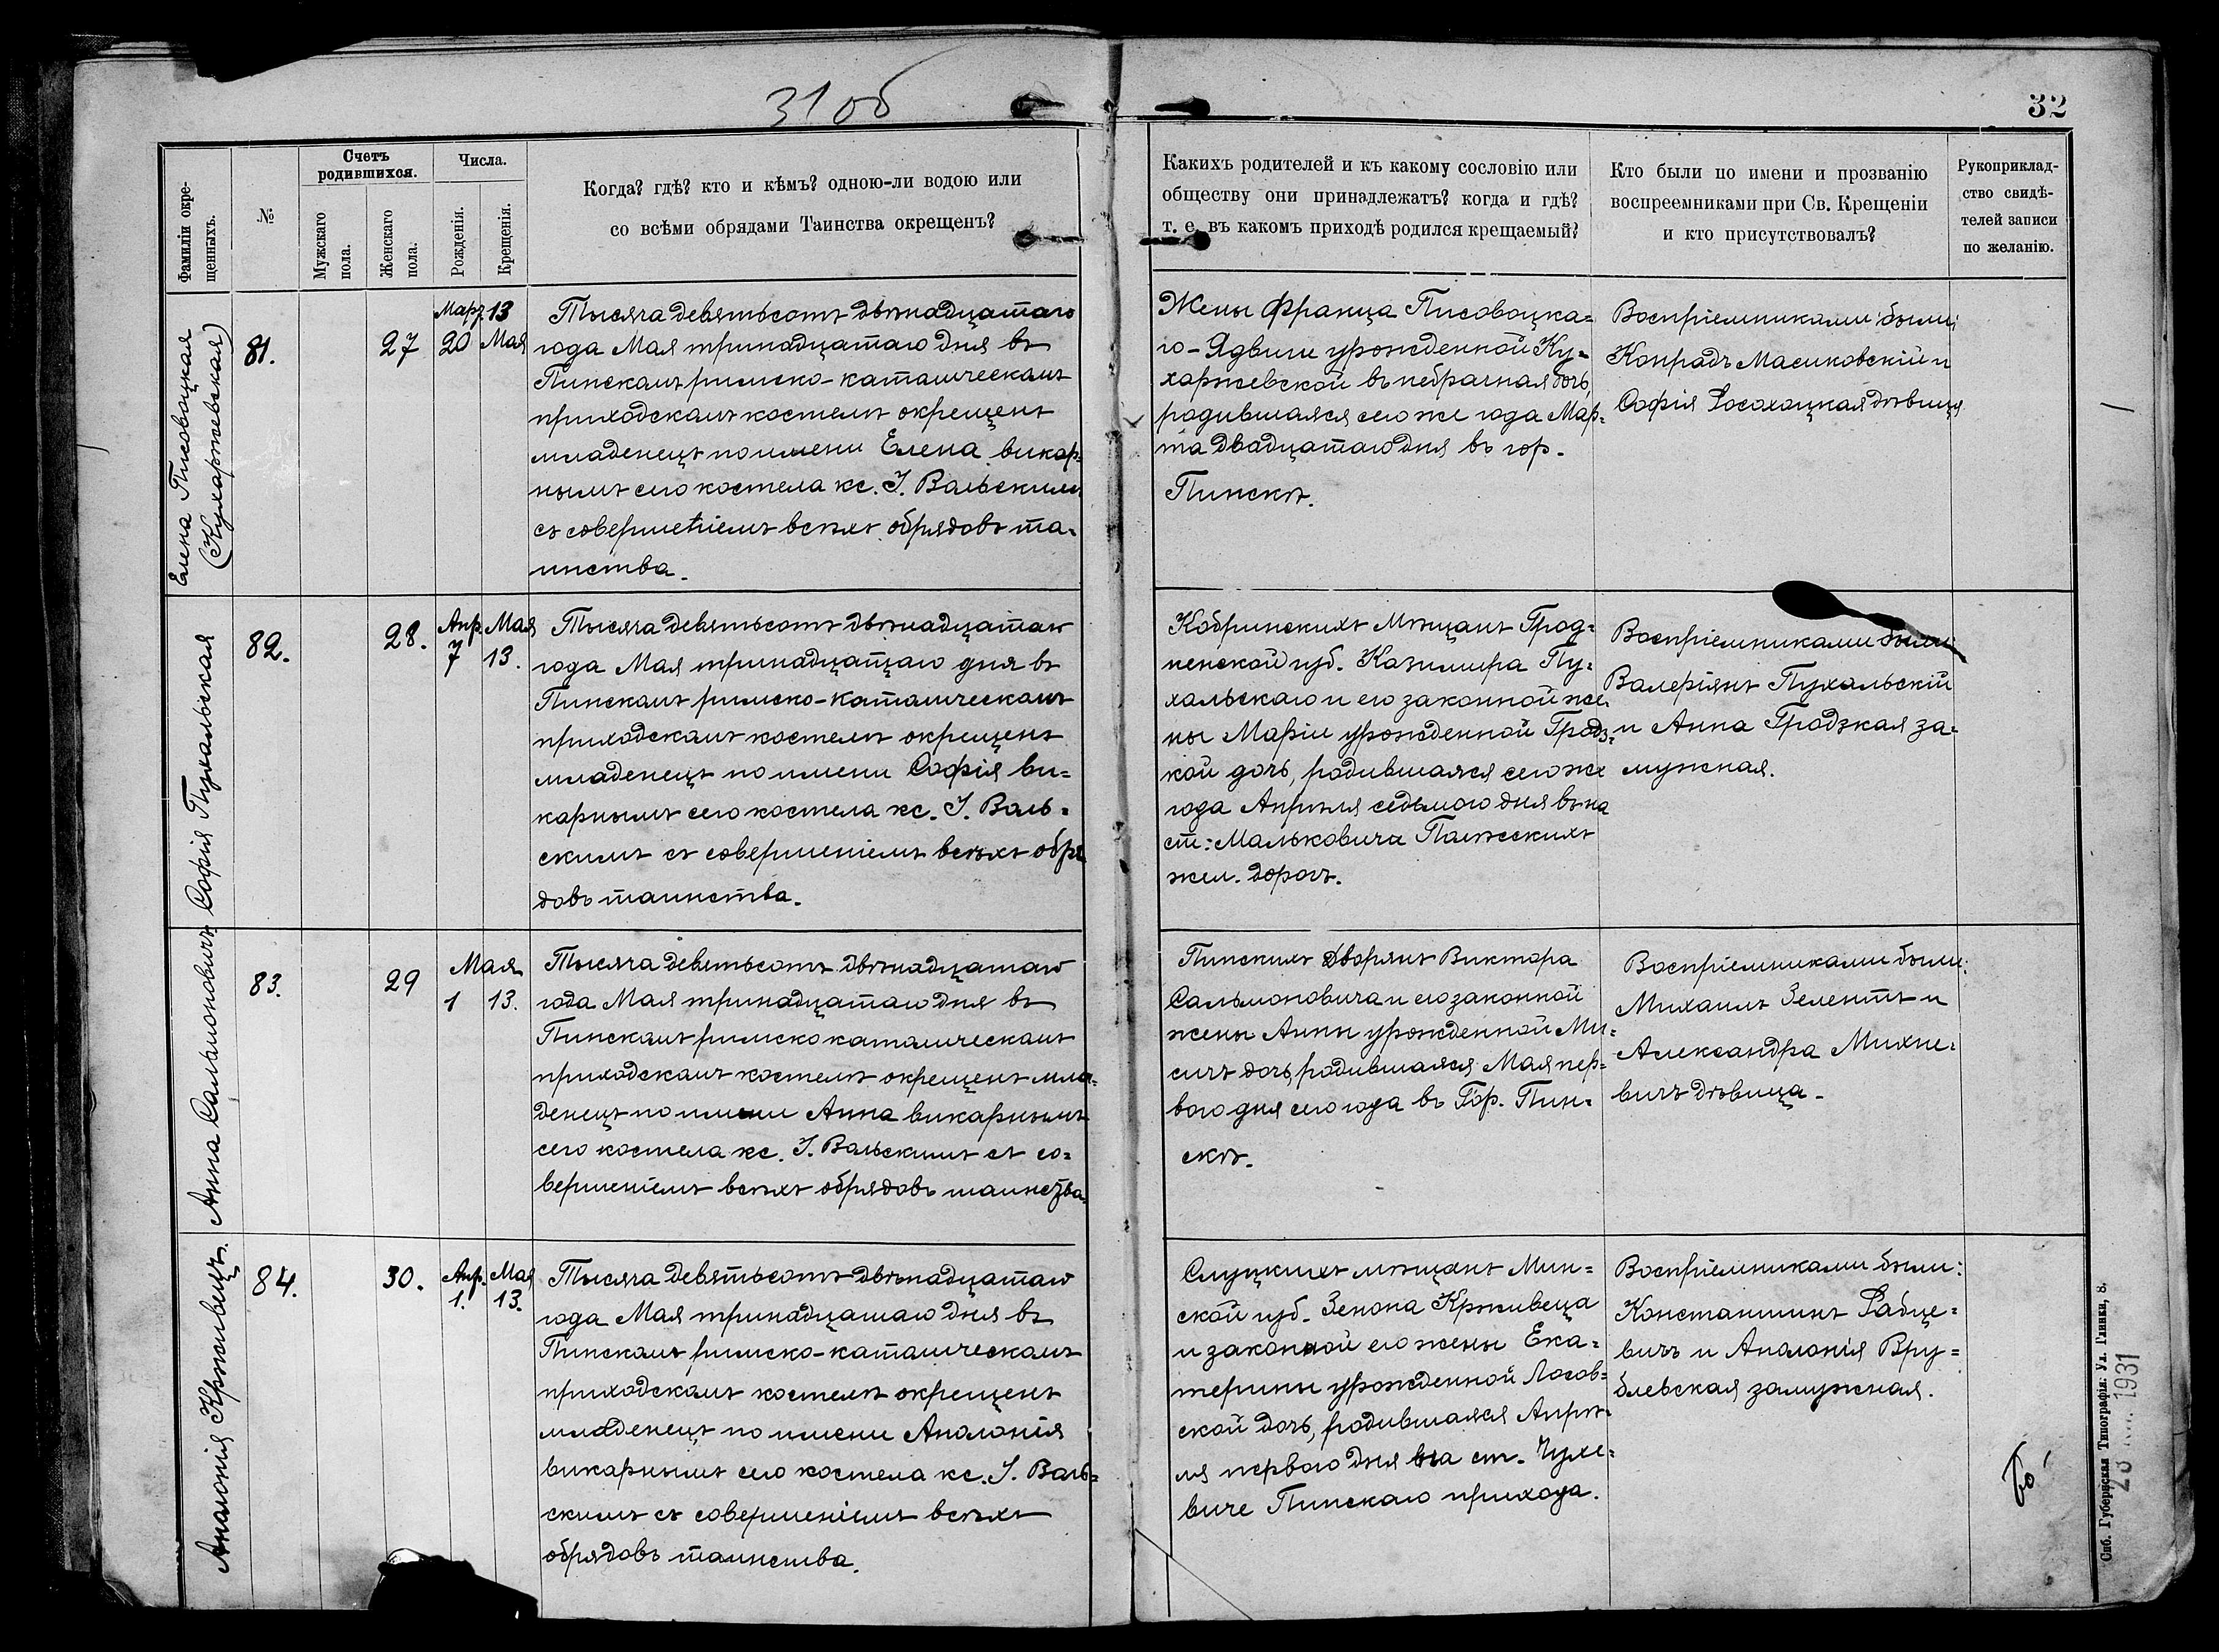 31 об
32
Фамиліи окре-
щенныхъ.
№
Счетъ
родившихся.
Мужскаго
пола.
Женскаго
пола.
Числа.
Рожденія.
Крещенія.
Когда? гдѣ? кто и кѣмъ? одною-ли водою или
со всѣми обрядами Таинства окрещенъ?
Какихъ родителей и къ какому сословію или
обществу они принадлежатъ? когда и гдѣ?
т. е. въ какомъ приходѣ родился крещаемый?
Кто были по имени и прозванію
воспреемниками при Св. Крещеніи
и кто присутствовалъ?
Рукоприклад-
ство свидѣ-
телей записи
по желанію.
Елена Писовоцкая
(Кухаржевская)
81.
27
Мар.
20
13
Мая
Тысяча девятьсотъ двѣнадцатаго
года Мая тринадцатаго дня въ
Пинскомъ римско-католическомъ
приходскомъ костелѣ окрещенъ
младенецъ по имени Елена викар-
нымъ сего костела кс. І. Вальскимъ
съ совершеніемъ всѣхъ обрядовъ та-
инства.
Жены Франца Писовоцка-
го - Ядвиги урожденной Ку-
харжевской внѣбрачная дочь,
родившаяся сего же года Мар-
та двадцатаго дня въ гор.
Пинскѣ.
Воспріемниками были:
Конрадъ Масиковскій и
Софія Рогохоцкая дѣвица
Софія Пухальская
82.
28.
Апр.
7
Мая
13.
Тысяча девятьсотъ двѣнадцатаго
года Мая тринадцатаго дня въ
Пинскомъ римско-католическомъ
приходскомъ костелѣ окрещенъ
младенецъ по имени Софія ви-
карнымъ сего костела кс. І. Валь-
скимъ съ совершеніемъ всѣхъ обря
довъ таинства.
Кобринскихъ Мѣщанъ Грод-
ненской губ. Казимира Пу-
хальскаго и его законной же
ны Маріи урожденной Гродз-
кой дочь, родившаяся сего же
года Апрѣля седьмого дня на
ст: Мальковичи Полѣсскихъ
жел. дорогъ.
Воспріемниками были:
Валеріянъ Пухальскій
и Анна Гродзкая за-
мужная.
Анна Сальмоновичъ
83.
29
Мая
1
13.
Тысяча девятьсотъ двѣнадцатаго
года Мая тринадцатаго дня въ
Пинскомъ римско католическомъ
приходскомъ костелѣ окрещенъ мла-
денецъ по имени Анна викарнымъ
сего костела кс. І. Вальскимъ съ со-
вершеніемъ всѣхъ обрядовъ таинства.
Пинскихъ Дворянъ Виктора
Сальмоновича и его законной
жены Анны урожденной Ми-
сичъ дочь родившаяся Мая пер-
вого дня сего года въ Гор. Пин-
скѣ.
Воспріемниками были:
Михаилъ Зелентъ и
Александра Михне-
вичъ дѣвица.
Аполонія Крживецъ.
84.
30.
Апр.
1.
Мая
13.
Тысяча девятьсотъ двѣнадцатаго
года Мая тринадцатаго дня въ
Пинскомъ римско-католическомъ
приходскомъ костелѣ окрещенъ
младенецъ по имени Аполонія
викарнымъ сего костела кс. І. Валь-
скимъ съ совершеніемъ всѣхъ
обрядовъ таинства.
Слуцкихъ мѣщанъ Мин-
ской губ. Зенона Крживеца
и законной его жены Ека-
терины урожденной Лосов-
ской дочь, родившаяся Апрѣ-
ля первого дня на ст. Чухе-
виче Пинскаго прихода.
Воспріемниками были:
Константинъ Рабце-
вичъ и Аполонія Вру-
блевская замужная.
Спб. Губернская Типографія: Ул. Глинки, 8.
1931